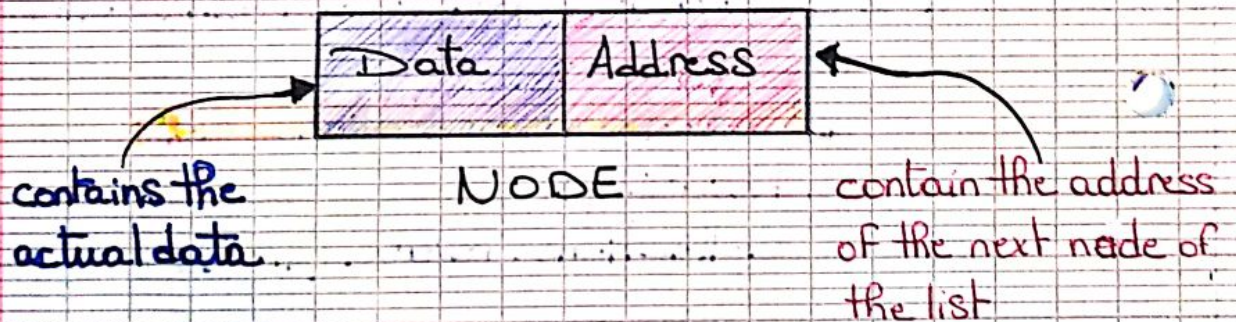 Data Address
contains the
actual data
NODE
contain the address
of the next node of
the list